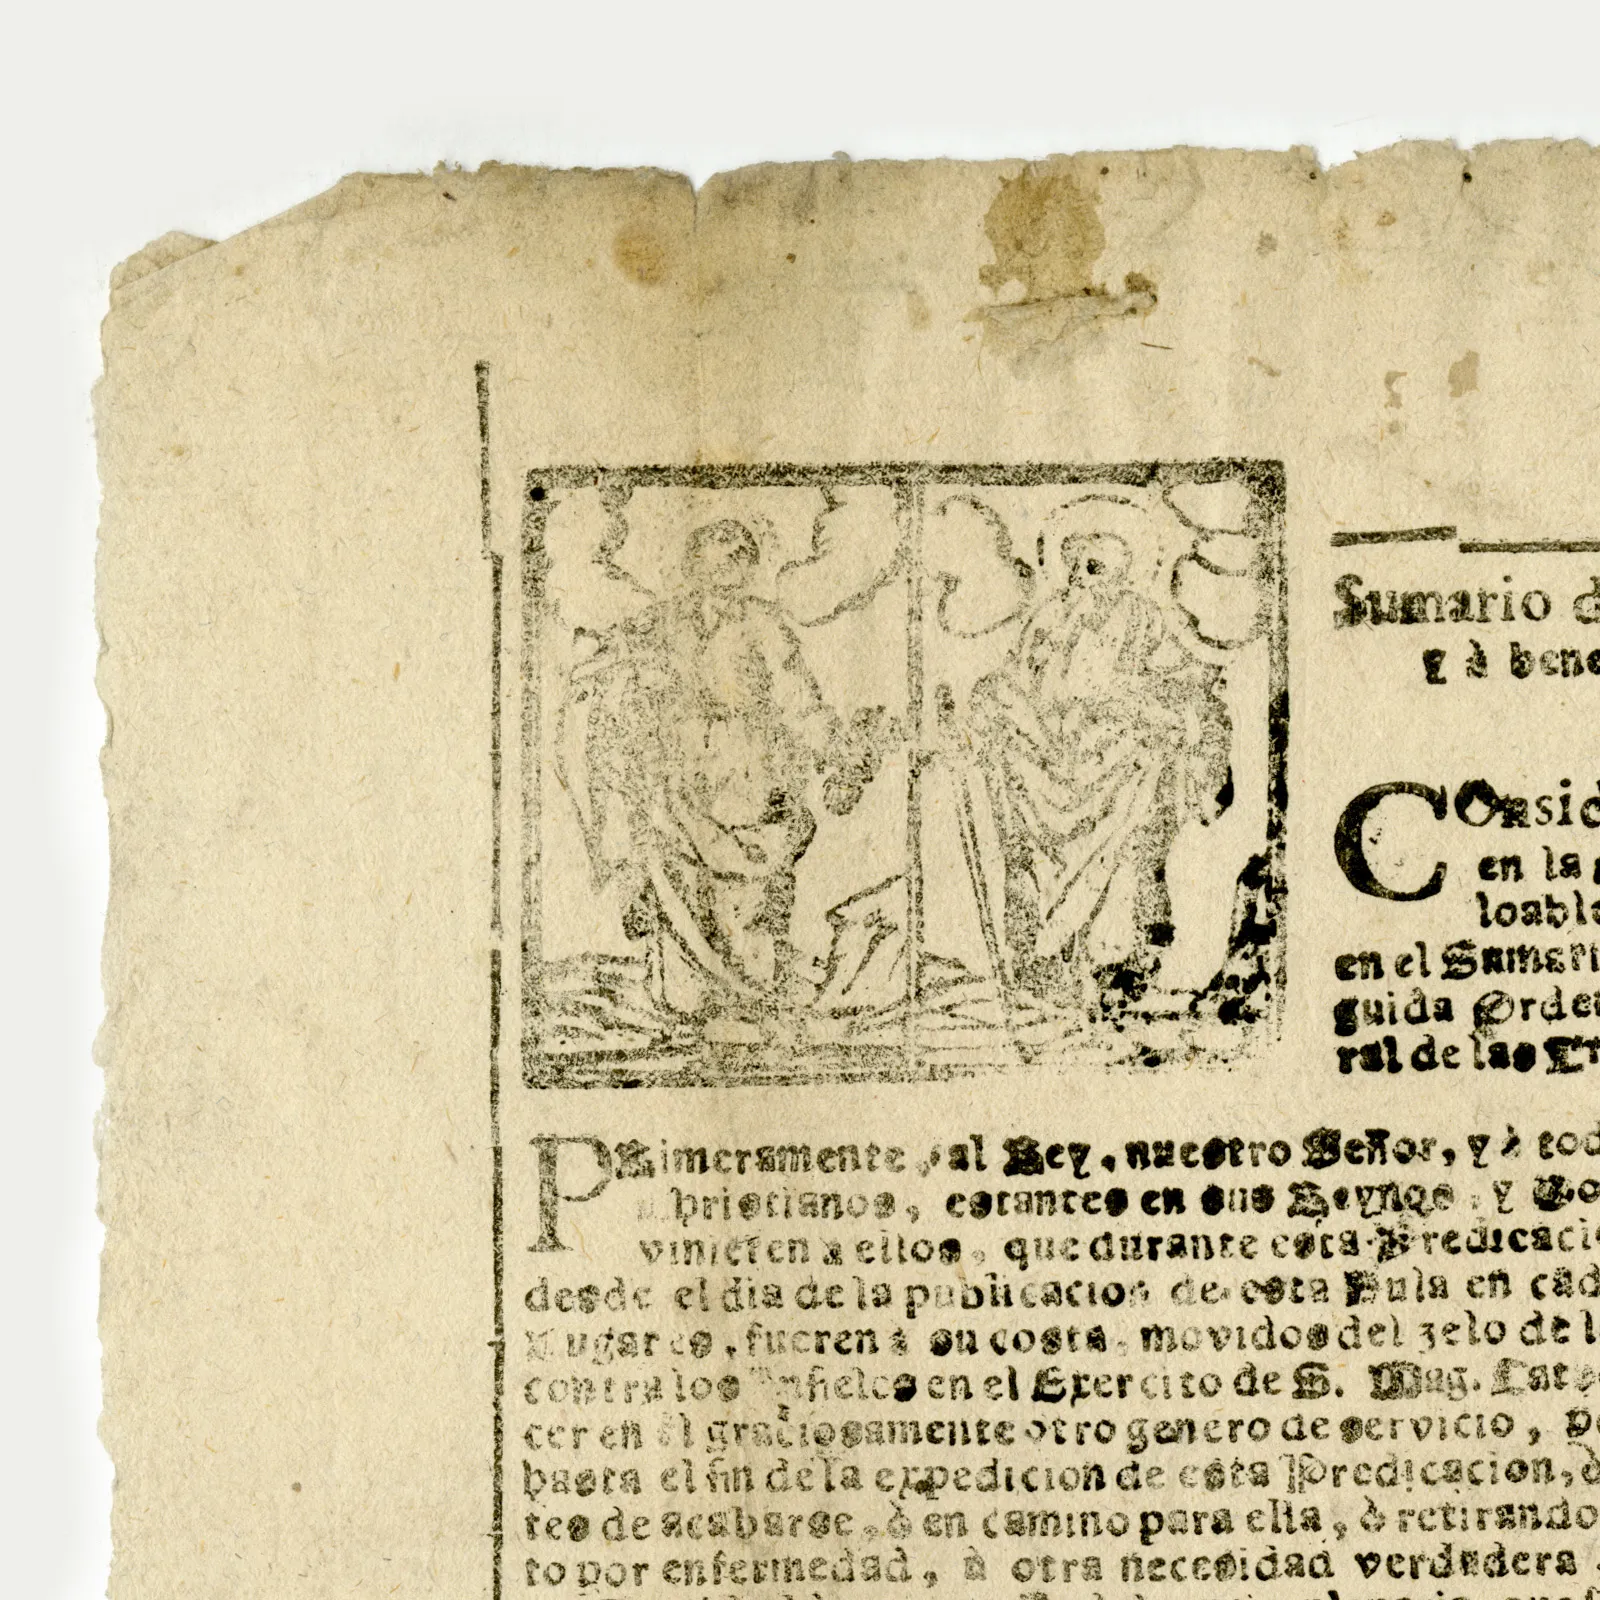 Sumario d
y à bene
COnsid
en la
loable
en el Sumari
guida Orden
ral de las Cr
PRimeramente, al Rey, nuestro Señor, y à tod
Christianos, estantes en sus Reynos, y Do
vinieren a ellos, que durante esta Predicaci
desde el dia de la publicacion de esta Bula en cad
Lugares, fueren à su costa, movidos del zelo de l
contra los Infieles en el Exercito de S. Mag. Cato
cer en èl graciosamente otro genero de servicio, pe
hasta el fin de la expedicion de esta Predicacion, ò
tes de acabarse, ò en camino para ella, ò retirando
to por enfermedad, ù otra necesidad verdadera